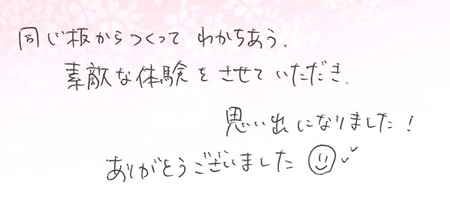 同じ板からつくって わかちあう.
素敵な体験をさせていただき.
思い出になりました!
ありがとうございました